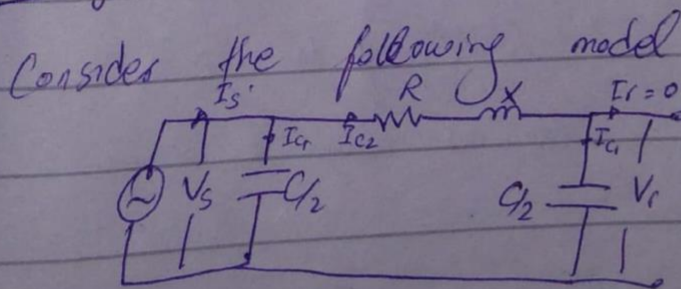 Consider the following model
Is R X Ir = 0
Ic1 Ic2 Ic1
Vs C/2 C/2 Vr